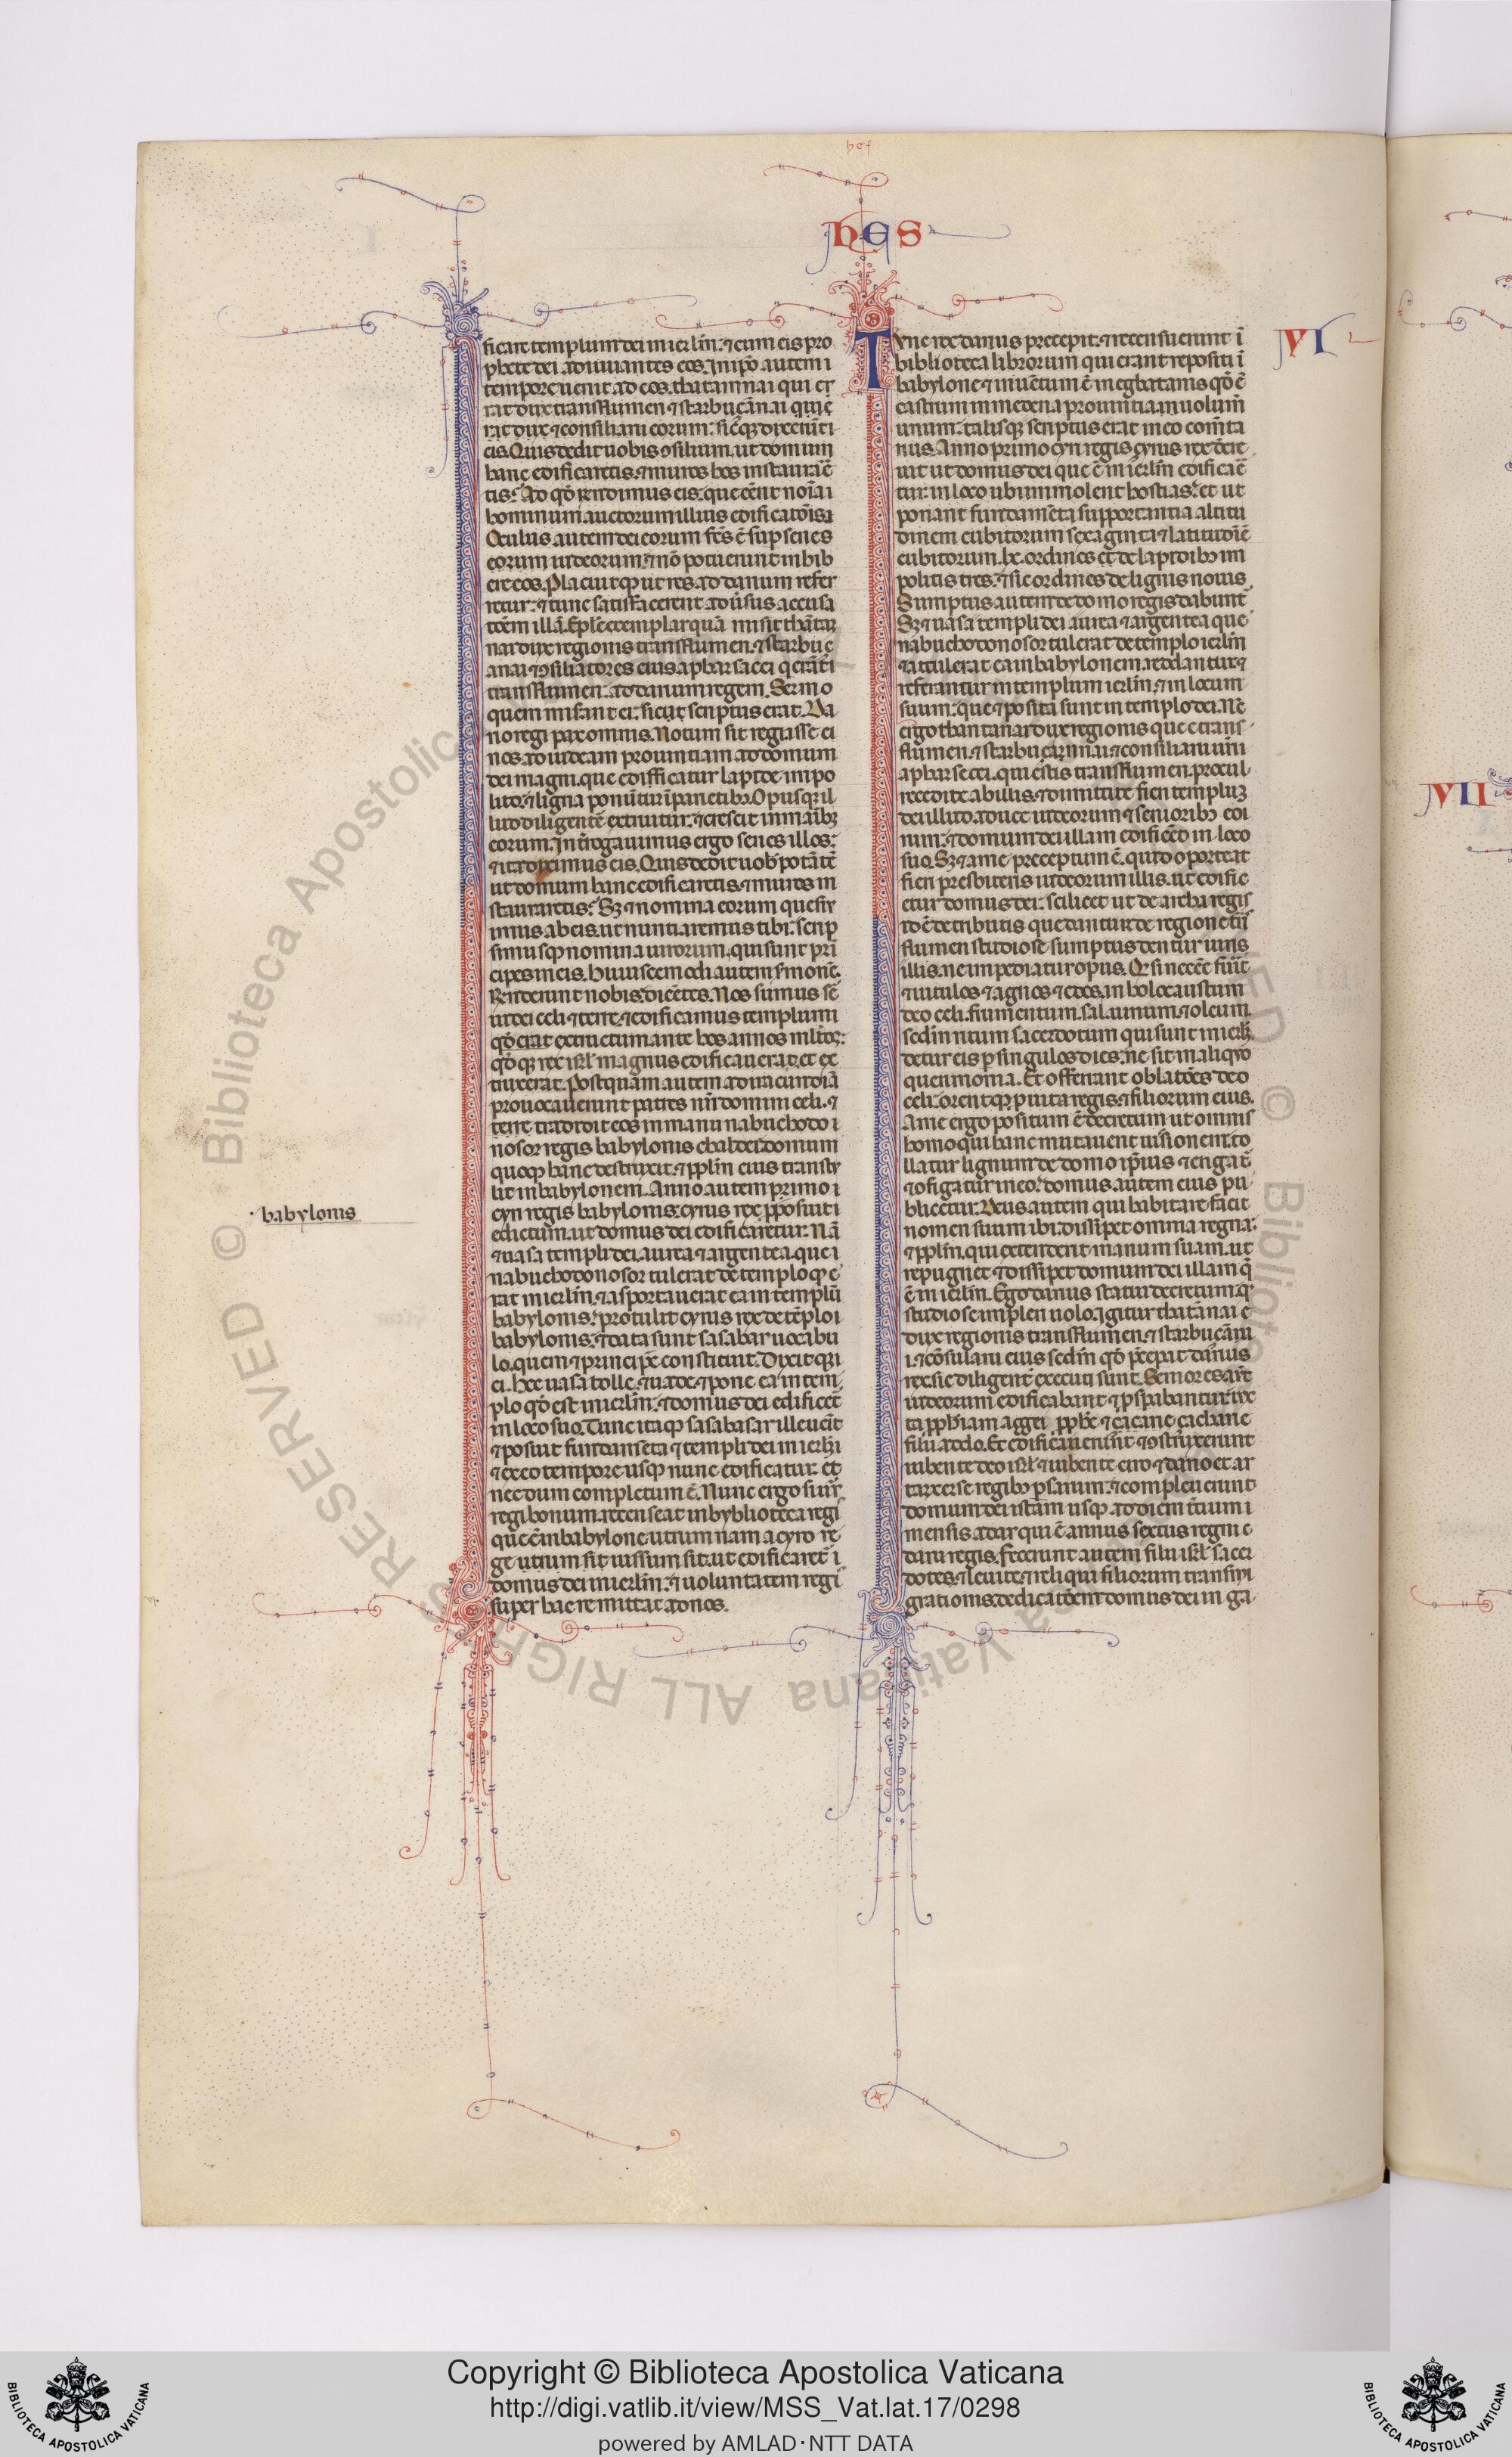 hes
HES
ficare templum dei in ierl̄m: ⁊ cum eis pro
phete dei adiuuantes eos. In ip̄o autem i
tempore uenit ad eos thatannai qui er
rat dux trans flumen ⁊ starbuçānai qui ē
rat dux ⁊ consiliarii eorum: sic̄q; dixerūt i
eis. Quis dedit uobis ꝯsilium ut domum
hanc edificaretis. ⁊ muros hos instaurarē
tis? Ad qd̄ rn̄dimus eis. que eēnt noīa i
hominum auctorum illius edificatōis a
Oculus autem dei eorum fc̄s ē sup senes
eorum iudeorum. ⁊ nō potuerunt inhib
ere eos. Placuitq; ut res ad darium refer
retur. ⁊ tunc satisfacerent adūsus accusa
toēm illā. Epl̄e exemplar quā misit thātan
nai dux regionis trans flumen. ⁊ starbuc
anai ⁊ ꝯsiliatores eius apharsacei q erāt i
trans flumen. ad darium regem. Sermo
quem misant ei. sicut scriptus erat. Da
rio regi pax omnis. Notum sit regi isse ei
nos ad iudeam prouintiam ad domum
dei magni. que edifficatur lapide impo
lito. ⁊ ligna ponūtur ī parietibꝫ. Opusq; il
lud diligentē extruitur. ⁊ crescit in maībꝫ
eorum. Int̄rogauimus ergo senes illos.
⁊ ita diximus eis. Quis dedit uob̄ potātē
ut domum hanc edificaretis ⁊ muros in
stauraretis? Sꝫ ⁊ nomina eorum quesiy
imus ab eis. ut nuntiaremus tibi. scrip
simusq; nomina uirorum. qui sunt pri
cipes in eis. Huiuscem odi autem s̄monē.
Rn̄derunt nobis. dicētes. Nos sumus sē
ui dei celi ⁊ terre. ⁊ edificamus templum i
qd̄ erat extructum ante hos annos mltōs:
qd̄q; rex isrl̄ magnus edificauerat. et ex
truxerat. Postquam autem ad iracundiā
prouocauerunt patres nr̄i domini celi. ⁊
terre tradidit eos in manu nabuchodo i
nosor regis babylonis chaldei. domum
quoq; hanc destruxit. ⁊ pplm̄ eius transtu
lit in babylonem. Anno autem primo i
cyri regis babylonis. cyrus rex pposuit i
edictum. ut domus dei edificaretur. Nā
⁊ uasa templi dei. aurea ⁊ argentea. que i
nabuchodonosor tulerat de templo q; e
rat in ierl̄m. ⁊ asportauerat ea in templū
babylonis. protulit cyrus rex de tēplo i
babylonis. ⁊ data sunt sasabar uocabu
lo. quem ⁊ principē constituit. Dixitq; i
ei. Hec uasa tolle. ⁊ uade. ⁊ pone ea in tem
plo qd̄ est in ierl̄m. ⁊ domus dei edificet̄
in loco suo. Tunc itaq; sasabasar ille uēit
⁊ posuit fundamēta ⁊ templi dei in ierl̄m
⁊ ex eo tempore usq; nunc edificatur. et
necdum completum ē. Nunc ergo si uīr
regi bonum. recenseat in byblioteca regi
que ē in babylone utrum nam a cyro re
ge utrum sit iussum sit. ut edificaret̄ i
domus dei in ierl̄m. ⁊ uoluntatem regi
super hac re mittat ad nos.
·babylonis
VI
Tvnc rex darius precepit. ⁊ recensuerunt ī
biblioteca librorum qui erant repositi ī
babylone ⁊ inuētum ē in egbatanis qd̄ ē
castrum in medena prouintia. uolum̄
unum. talisq; scriptus erat in eo com̄ta
rius. Anno primo cyri regis. cyrus rex dēcre
uit ut domus dei que ē in ierl̄m edificarē
tur. in loco ubi immolent hostias. et ut
ponant fundamēta supportantia altitu
dinem cubitorum sexaginta ⁊ latitudīē
cubitorum. lx. ordines et̄ de lapidibꝫ im
politis tres. ⁊ sic ordines de lignis nouis
Sumptus autem de domo regis dabunt̄
Sꝫ ⁊ uasa templi dei aurea ⁊ argentea que
nabuchodonosor tulerat de templo ierl̄m
⁊ attulerat ea in babylonem. reddantur ⁊
referantur in templum ierl̄m. ⁊ in locum
suum. que ⁊ posita sunt in templo dei. Nē
ergo thantanai dux regionis que ē trans
flumen. ⁊ starbuçannai ⁊ consiliarii um̄
apharsecei. qui estis trans flumen. procul
recedite ab illis. ⁊ dimittite fieri templuꝫ
dei illud a duce iudeorum ⁊ senioribꝫ eoi
rum. ⁊ domum dei illam edificēt̄ in loco
suo. Sꝫ ⁊ a me preceptum ē. quid oporteat
fieri presbiteris iudeorum illis. ut edific
etur domus dei. scilicet ut de archa regis
id ē de tributis que dantur de regione trā
flumen studiose sumptus dentur uiris
illis. ne impediatur opus. Qr̄ si necēe fūit
⁊ uitulos ⁊ agnos ⁊ edos. in holocaustum
deo celi. frumentum. sal. uinum. ⁊ oleum.
scd̄m ritum sacerdotum qui sunt in ierl̄m
detur eis p singulos dies. ne sit in aliquo
querimonia. Et offerant oblatōes deo
celi. orentq; p uita regis. ⁊ filiorum eius.
A me ergo positum ē decretum ut omnis
homo qui hanc mutauerit iussionem. to
llatur lignum de domo ip̄ius ⁊ erigat̄
⁊ ꝯfigatur in eo. domus autem eius pu
blicetur. Deus autem qui habitare facit
nomen suum ibi. dissipet omnia regna.
⁊ pplm̄. qui extenderit manum suam. ut
repugnet ⁊ dissipet domum dei illam q̄
ē in ierl̄m. Ego darius statui decretum. q
studiose impleri uolo. Igitur thatannai e
dux regionis trans flumen. ⁊ starbuçāna
i. ⁊ cōsularii eius scd̄m qd̄ p̄cepit darius
rex. sic diligent̄ executi sunt. Seniores aūt
iudeorum edificabant ⁊ p̄spabantur iux
ta pphīam aggei pphē ⁊ çacarie çachane
filii addo. Et edificauerunt ⁊ ꝯstruxerunt
iubente deo isrl̄ ⁊ iubente ciro ⁊ dario et ar
tarxerse regibꝫ p̄sarum. ⁊ compleuerunt
domum dei istam usq; ad diem t̄cium i
mensis adar qui ē annus sextus regni e
darii regis. Fecerunt autem filii isrl̄ sacer
dotes. ⁊ leuite. ⁊ reliqui filiorum transmi
grationis. dedicatōem domus dei in ga
VII
© Biblioteca Apostolica Vaticana ALL RIGHTS RESERVED
Copyright © Biblioteca Apostolica Vaticana
http://digi.vatlib.it/view/MSS_Vat.lat.17/0298
powered by AMLAD·NTT DATA
BIBLIOTECA APOSTOLICA VATICANA
BIBLIOTECA APOSTOLICA VATICANA